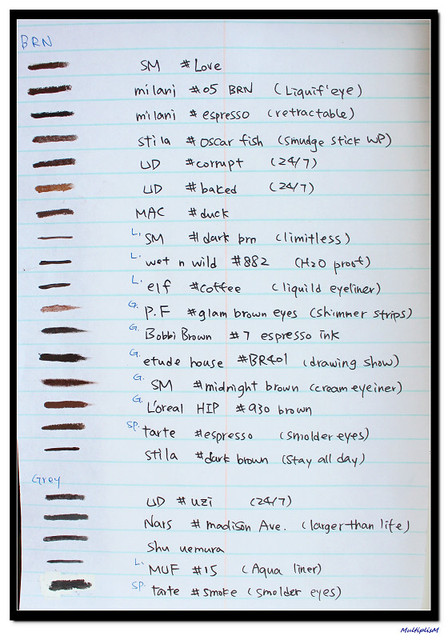 BRN
SM #Love
milani #05 BRN (Liquif'eye)
milani #espresso (retractable)
stila #oscar fish (smudge stick WP)
UD #corrupt (24/7)
UD #baked (24/7)
MAC #duck
L. SM #dark brn (limitless)
L. wet n wild #882 (H2O proof)
L. elf #coffee (liquild eyeliner)
G. P.F #glam brown eyes (shimmer strips)
G. Bobbi Brown #7 espresso ink
G. etude house #BR401 (drawing show)
G. SM #midnight brown (cream eyeiner)
G. L'oreal HIP #930 brown
SP. tarte #espresso (smolder eyes)
stila #dark brown (stay all day)
Grey
UD #uzi (24/7)
Nars #madison Ave. (larger than life)
Shu uemura
L. MUF #15 (Aqua liner)
SP. tarte #smoke (smolder eyes)
MultiplisM